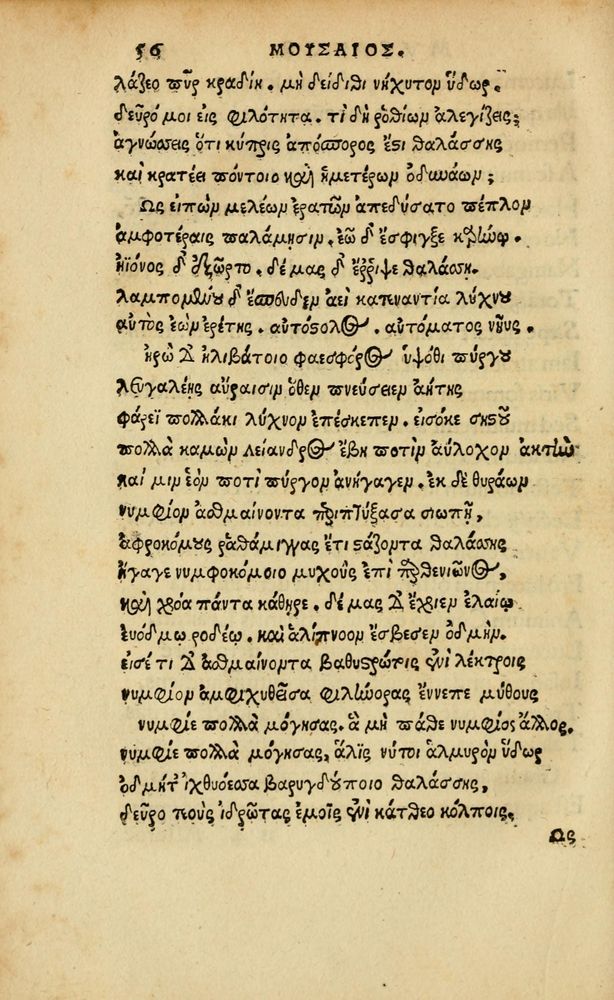 56 ΜΟΥΣΑΙΟΣ.
λάζεο πῦρ κραδίη. μὴ δείδιθι νήχυτον ὕδωρ.
δεῦρό μοι εἰς φιλότητα. τί δὴ ῥοθίων ἀλεγίζεις;
ἀγνώσσεις ὅτι κύπρις ἀπόσπορος ἔστι θαλάσσης
καὶ κρατέει πόντοιο καὶ ἡμετέρων ὀδυνάων;
Ὣς εἰπὼν μελέων ἐρατῶν ἀπεδύσατο πέπλον
ἀμφοτέραις παλάμησιν. ἑῷ δ' ἔσφιγξε καρήνῳ.
ἠϊόνος δ' ἐξῶρτο. δέμας δ' ἔρριψε θαλάσση.
λαμπομένου δ' ἔσπευδεν ἀεὶ κατεναντία λύχνου
αὐτὸς ἐὼν ἐρέτης. αὐτόστολος. αὐτόματος νηῦς.
Ἡρὼ δ' ἠλιβάτοιο φαεσφόρος ὑψόθι πύργου
λευγαλέης αὔραισιν ὅθεν πνεύσειεν ἀήτης
φάρεϊ πολλάκι λύχνον ἐπέσκεπεν. εἰσόκε σηστοῦ
πολλὰ καμὼν λείανδρος ἔβη ποτὶν αὔλοχον ἀκτὴν
καί μιν ἑὸν ποτὶ πύργον ἀνήγαγεν. ἐκ δὲ θυράων
νυμφίον ἀσθμαίνοντα περιπτύξασα σιωπῇ,
ἀφροκόμους ῥαθάμιγγας ἔτι στάζοντα θαλάσσης
ἤγαγε νυμφοκόμοιο μυχοὺς ἐπὶ παρθενιῶνος,
καὶ χρόα πάντα κάθηρε. δέμας δ' ἔχριεν ἐλαίῳ
εὐόδμῳ ῥοδέῳ. καὶ ἁλίπνοον ἔσβεσεν ὀδμήν.
εἰσέτι δ' ἀσθμαίνοντα βαθυστρώτοις ἐνὶ λέκτροις
νυμφίον ἀμφιχυθεῖσα φιλήνορας ἔννεπε μύθους
νυμφίε πολλὰ μόγησας. ἃ μὴ πάθε νυμφίος ἄλλος.
νυμφίε πολλὰ μόγησας, ἅλις νύ τοι ἁλμυρὸν ὕδωρ
ὀδμήτ' ἰχθυόεσσα βαρυγδούποιο θαλάσσης,
δεῦρο τεοὺς ἱδρῶτας ἐμοῖς ἐνὶ κάτθεο κόλποις.
Ὣς